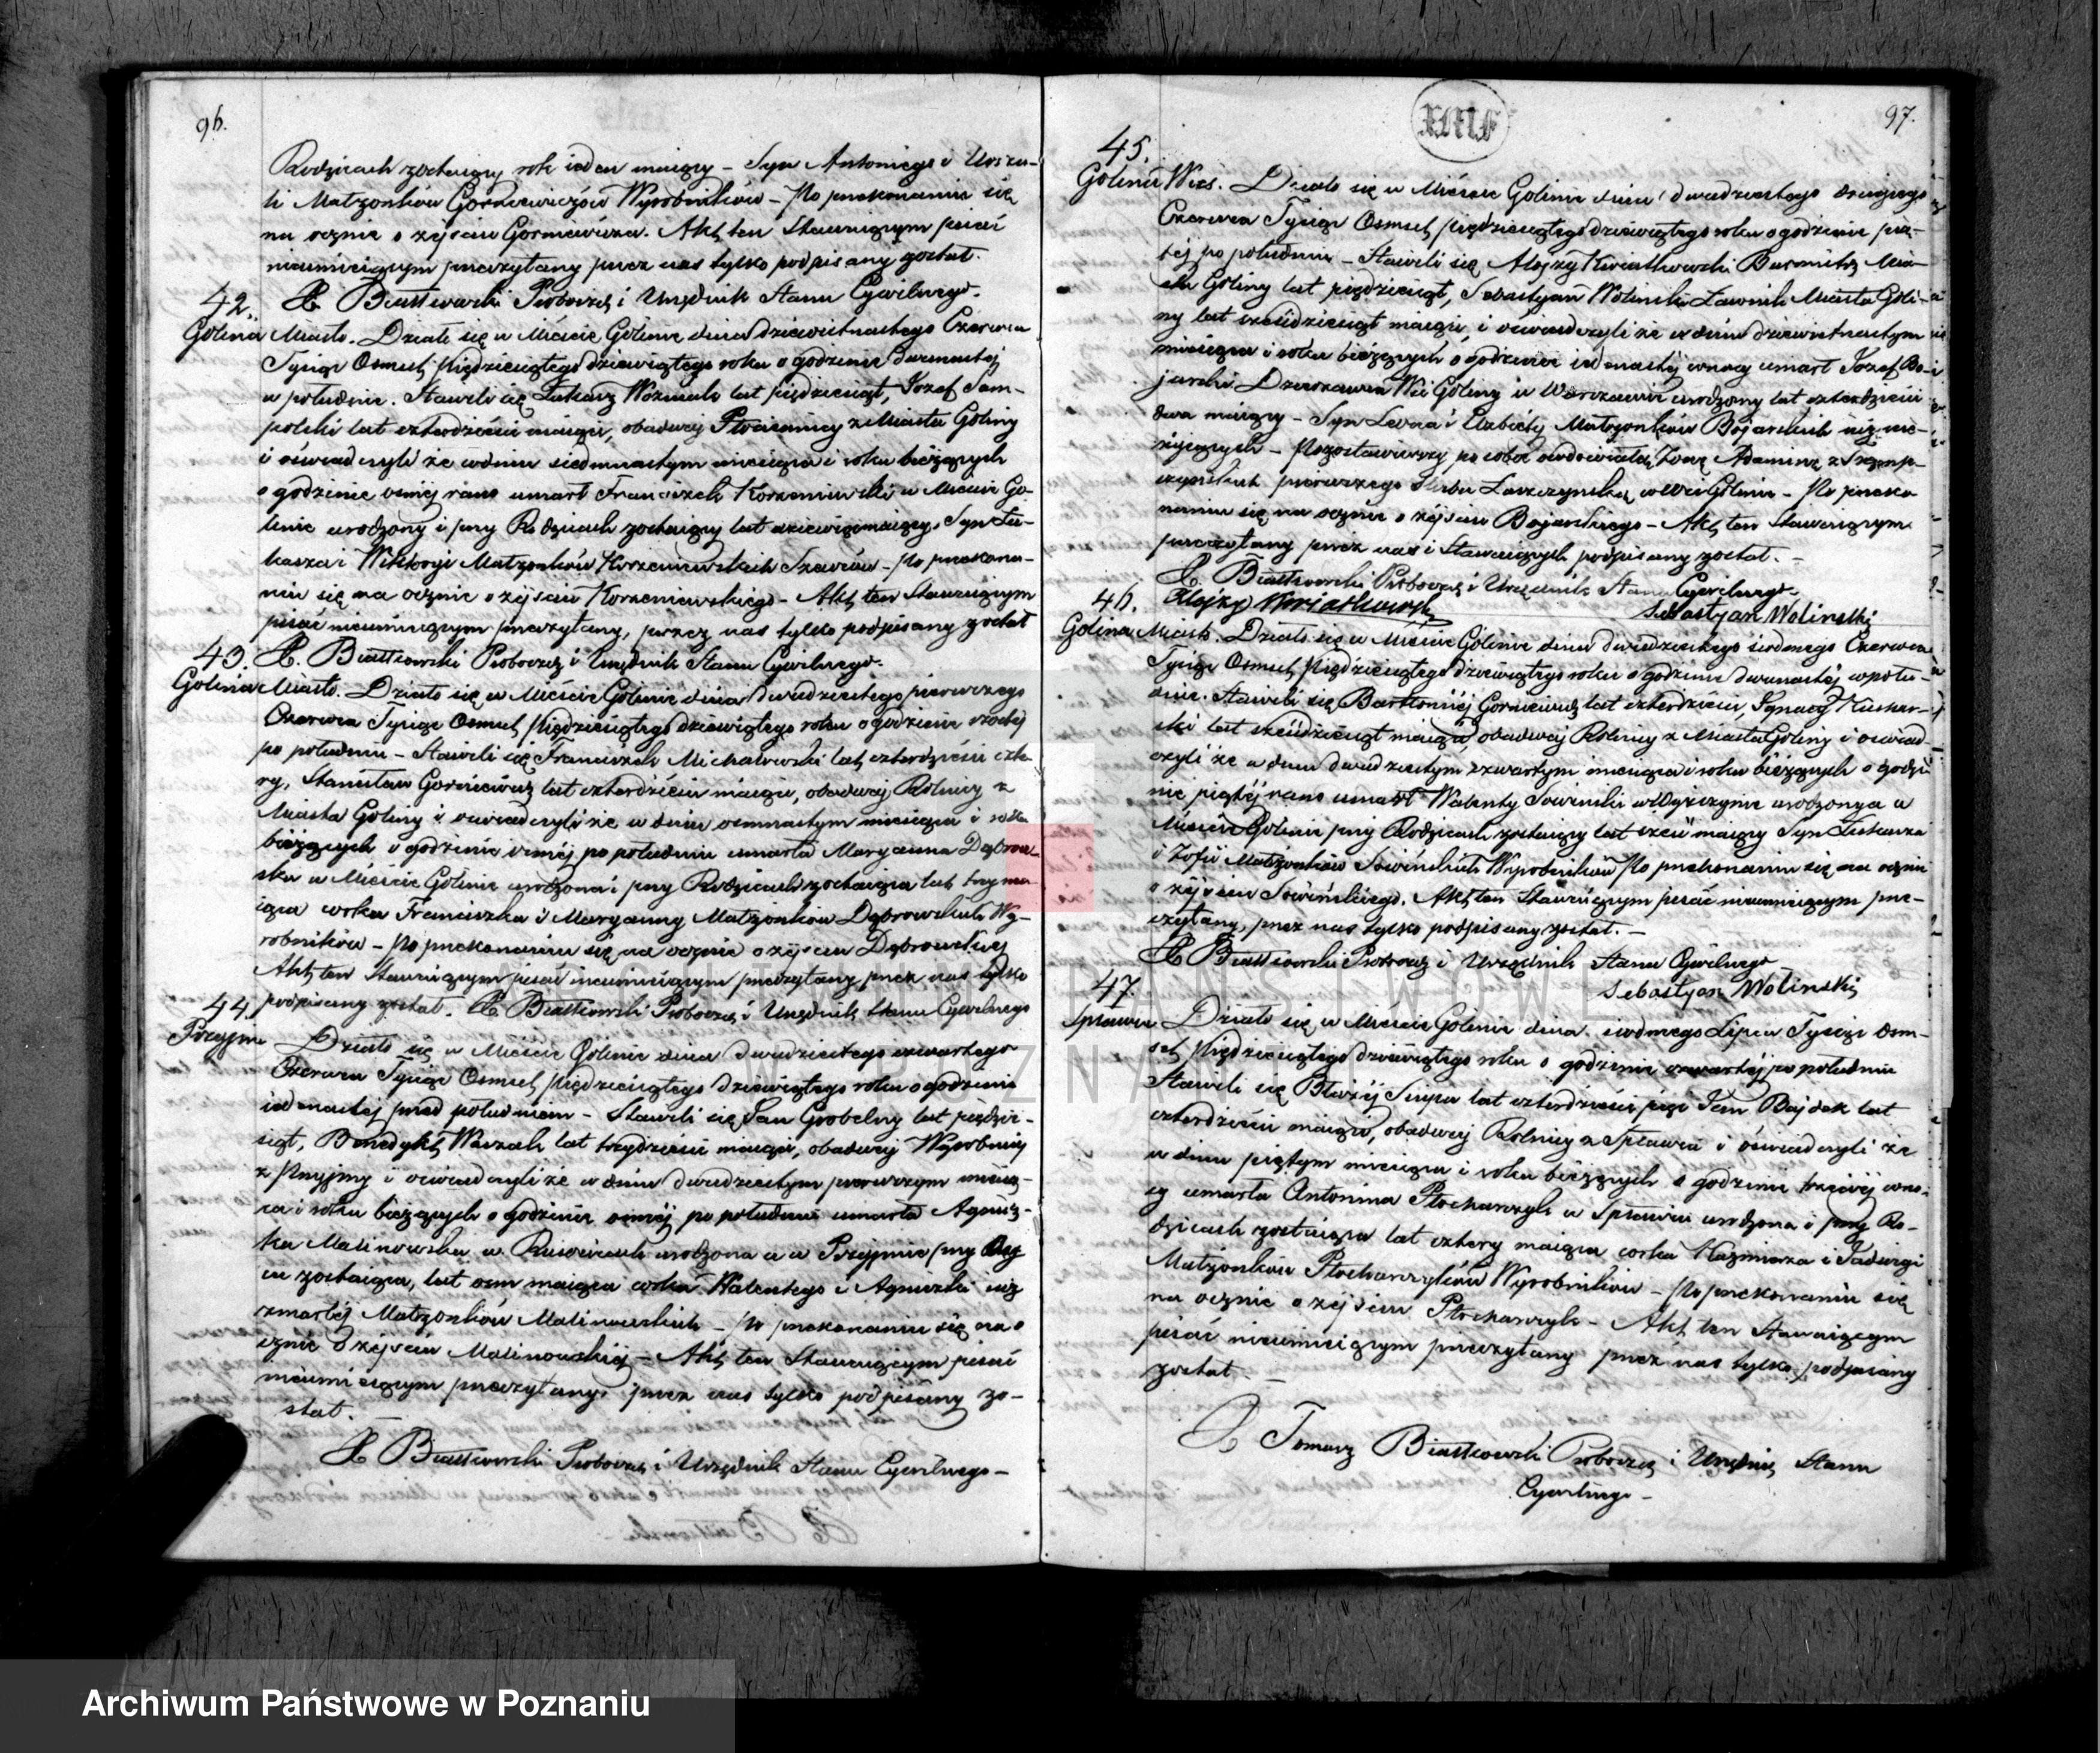 96.
Rodzicach zostaiący rok ieden maiący – Syn Antoniego i Urszu-
li Małżonków Gorniewiczów Wyrobników – Po przekonaniu się
na ocznie o zejściu Gorniewicza. Akt ten Stawaiącym pisać
nieumieiącym przeczytany przez nas tylko podpisany został.
X. Białkowski Proboszcz i Urzędnik Stanu Cywilnego.
42.
Golina Miasto. Działo się w Mieście Golinie dnia dziewietnastego Czerwca
Tysiąc Osmset Pięćdziesiątego dziewiątego roku o godzinie dwunastej
w południe. Stawili się Łukasz Woźniak lat pięćdziesiąt, Jozef Sam-
polski lat czterdzieści maiący, obadwaj Płociennicy z Miasta Goliny
i oświadczyli że w dniu siedmnastym miesiąca i roku bieżących
o godzinie osmej rano umarł Franciszek Korzeniewski w Mieście Go-
linie urodzony i przy Rodzicach zostaiący lat dziewięć maiący, Syn Łu-
kasza i Wiktoryi Małżonków Korzeniewskich Szewców – Po przekona-
niu się na ocznie o zejściu Korzeniewskiego – Akt ten Stawaiącym
pisać nieumieiącym przeczytany, przez nas tylko podpisany został
X. Białkowski Proboszcz i Urzędnik Stanu Cywilnego.
43.
Golina Miasto. Działo się w Mieście Golinie dnia dwudziestego pierwszego
Czerwca Tysiąc Osmset Pięćdziesiątego dziewiątego roku o godzinie szostej
po południu – Stawili się Franciszek Michałowski lat czterdzieści czte-
ry, Stanisław Gorniewicz lat czterdzieści maiący, obadwaj Rolnicy z
Miasta Goliny i oświadczyli że w dniu osmnastym miesiąca i roku
bieżących o godzinie osmej po południu umarła Maryanna Dąbrow-
ska w Mieście Golinie urodzona i przy Rodzicach zostaiąca lat trzy ma-
iąca corka Franciszka i Maryanny Małżonków Dąbrowskich Wy-
robników – Po przekonaniu się na ocznie o zejściu Dąbrowskiej
Akt ten Stawaiącym pisać nieumieiącym przeczytany przez nas tylko
podpisany został. X. Białkowski Proboszcz i Urzędnik Stanu Cywilnego
44.
Przyjma Działo się w Mieście Golinie dnia dwudziestego czwartego
Czerwca Tysiąc Osmset Pięćdziesiątego dziewiątego roku o godzinie
iedenastej przed południem – Stawili się Jan Grobelny lat pięćdzie-
siąt, Benedykt Waszak lat trzydzieści maiący, obadwaj Wyrobnicy
z Przyjmy i oświadczyli że w dniu dwudziestym pierwszym miesią-
ca i roku bieżących o godzinie osmej po południu umarła Agniesz-
ka Malinowska w urodzona a w Przyjmie przy Ojcu
zostaiąca, lat osm maiąca corka Walentego i Agnieszki iuż
zmarłej Małżonków Malinowskich – Po przekonaniu się na o
cznie o zejściu Malinowskiej – Akt ten Stawaiącym pisać
nieumieiącym przeczytany, przez nas tylko podpisany zo-
stał.
X Białkowski Proboszcz i Urzędnik Stanu Cywilnego –
97.
45.
Golina Wieś. Działo się w Mieście Golinie dnia dwudziestego drugiego
Czerwca Tysiąc Osmset Pięćdziesiątego dziewiątego roku o godzinie pią-
tej po południu – Stawili się Alojzy Kwiatkowski Burmistrz Mia-
sta Goliny lat pięćdziesiąt, Sebastyan Woliński Ławnik Miasta Goli-
ny lat sześćdziesiąt maiący i oświadczyli że w dniu dziewietnastym
miesiąca i roku bieżących o godzinie iedenastej w nocy umarł Jozef Bo-
jarski Dzierżawca Wsi Goliny w Warszawie urodzony lat czterdzieści
dwa maiący – Syn Leona i Elżbiety Małżonków Bojarskich iuż nie-
żyiących – Pozostawiwszy po sobie owdowiałą Żonę
pierwszego Ślubu Łaszczyńską w Wsi Golinie – Po przeko-
naniu się na ocznie o zejściu Bojarskiego – Akt ten Stawaiącym
przeczytany przez nas i Stawaiących podpisany został. –
X. Białkowski Proboszcz i Urzędnik Stanu Cywilnego –
Alojzy Kwiatkowski
Sebastyan Wolinski
46.
Golina Miasto. Działo się w Mieście Golinie dnia dwudziestego siodmego Czerwca
Tysiąc Osmset Pięćdziesiątego dziewiątego roku o godzinie dwunastej w połu-
dnie. Stawili się Bartłomiej Gorniewicz lat czterdzieści, Ignacy Kuchar-
ski lat sześćdziesiąt maiący, obadwaj Rolnicy z Miasta Goliny i oświad-
czyli że w dniu dwudziestym czwartym miesiąca i roku bieżących o godzi-
nie piątej rano umarł Walenty Sowiński w Węgierzynie urodzony a w
Mieście Golinie przy Rodzicach zostaiący lat sześć maiący Syn Łukasza
i Zofii Małżonków Sowińskich Wyrobników Po przekonaniu się na ocznie
o zejściu Sowińskiego. Akt ten Stawaiącym pisać nieumieiącym prze-
czytany, przez nas tylko podpisany został. –
X Białkowski Proboszcz i Urzędnik Stanu Cywilnego
Sebastyan Wolinski
47.
Spławie Działo się w Mieście Golinie dnia siodmego Lipca Tysiąc Osm-
set Pięćdziesiątego dziewiątego roku o godzinie czwartej po południu
Stawili się Błażej Siupa lat czterdzieści pięć Jan Bajdek lat
czterdzieści maiący, obadwaj Rolnicy z Spławia i oświadczyli że
w dniu piątym miesiąca i roku bieżących o godzinie trzeciej w no-
cy umarła Antonina Płocharczyk w Spławiu urodzona i przy Ro-
dzicach zostaiąca lat cztery maiąca corka Kazmierza i Jadwigi
Małżonków Płocharczyków Wyrobników – Po przekonaniu się
na ocznie o zejściu Płocharczyk – Akt ten Stawaiącym
pisać nieumieiącym przeczytany przez nas tylko podpisany
został –
X Tomasz Białkowski Proboszcz i Urzędnik Stanu
Cywilnego –
ARCHIWUM PAŃSTWOWE
W POZNANIU
Archiwum Państwowe w Poznaniu